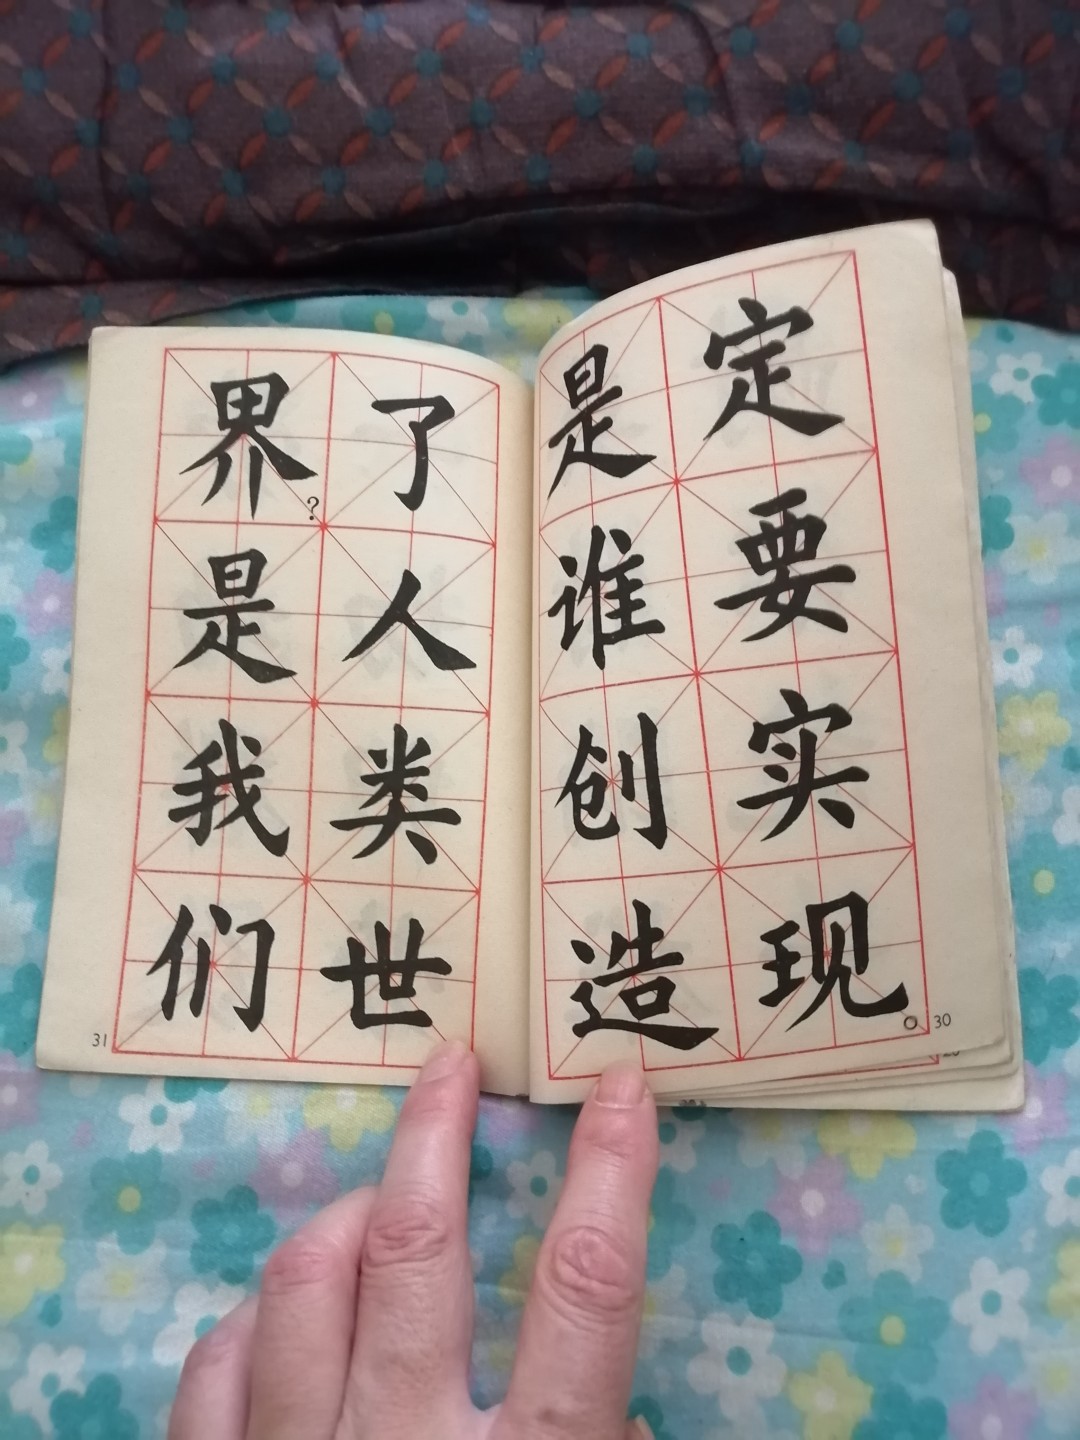 定要实现。
是谁创造
30
了人类世
界?
是我们
31